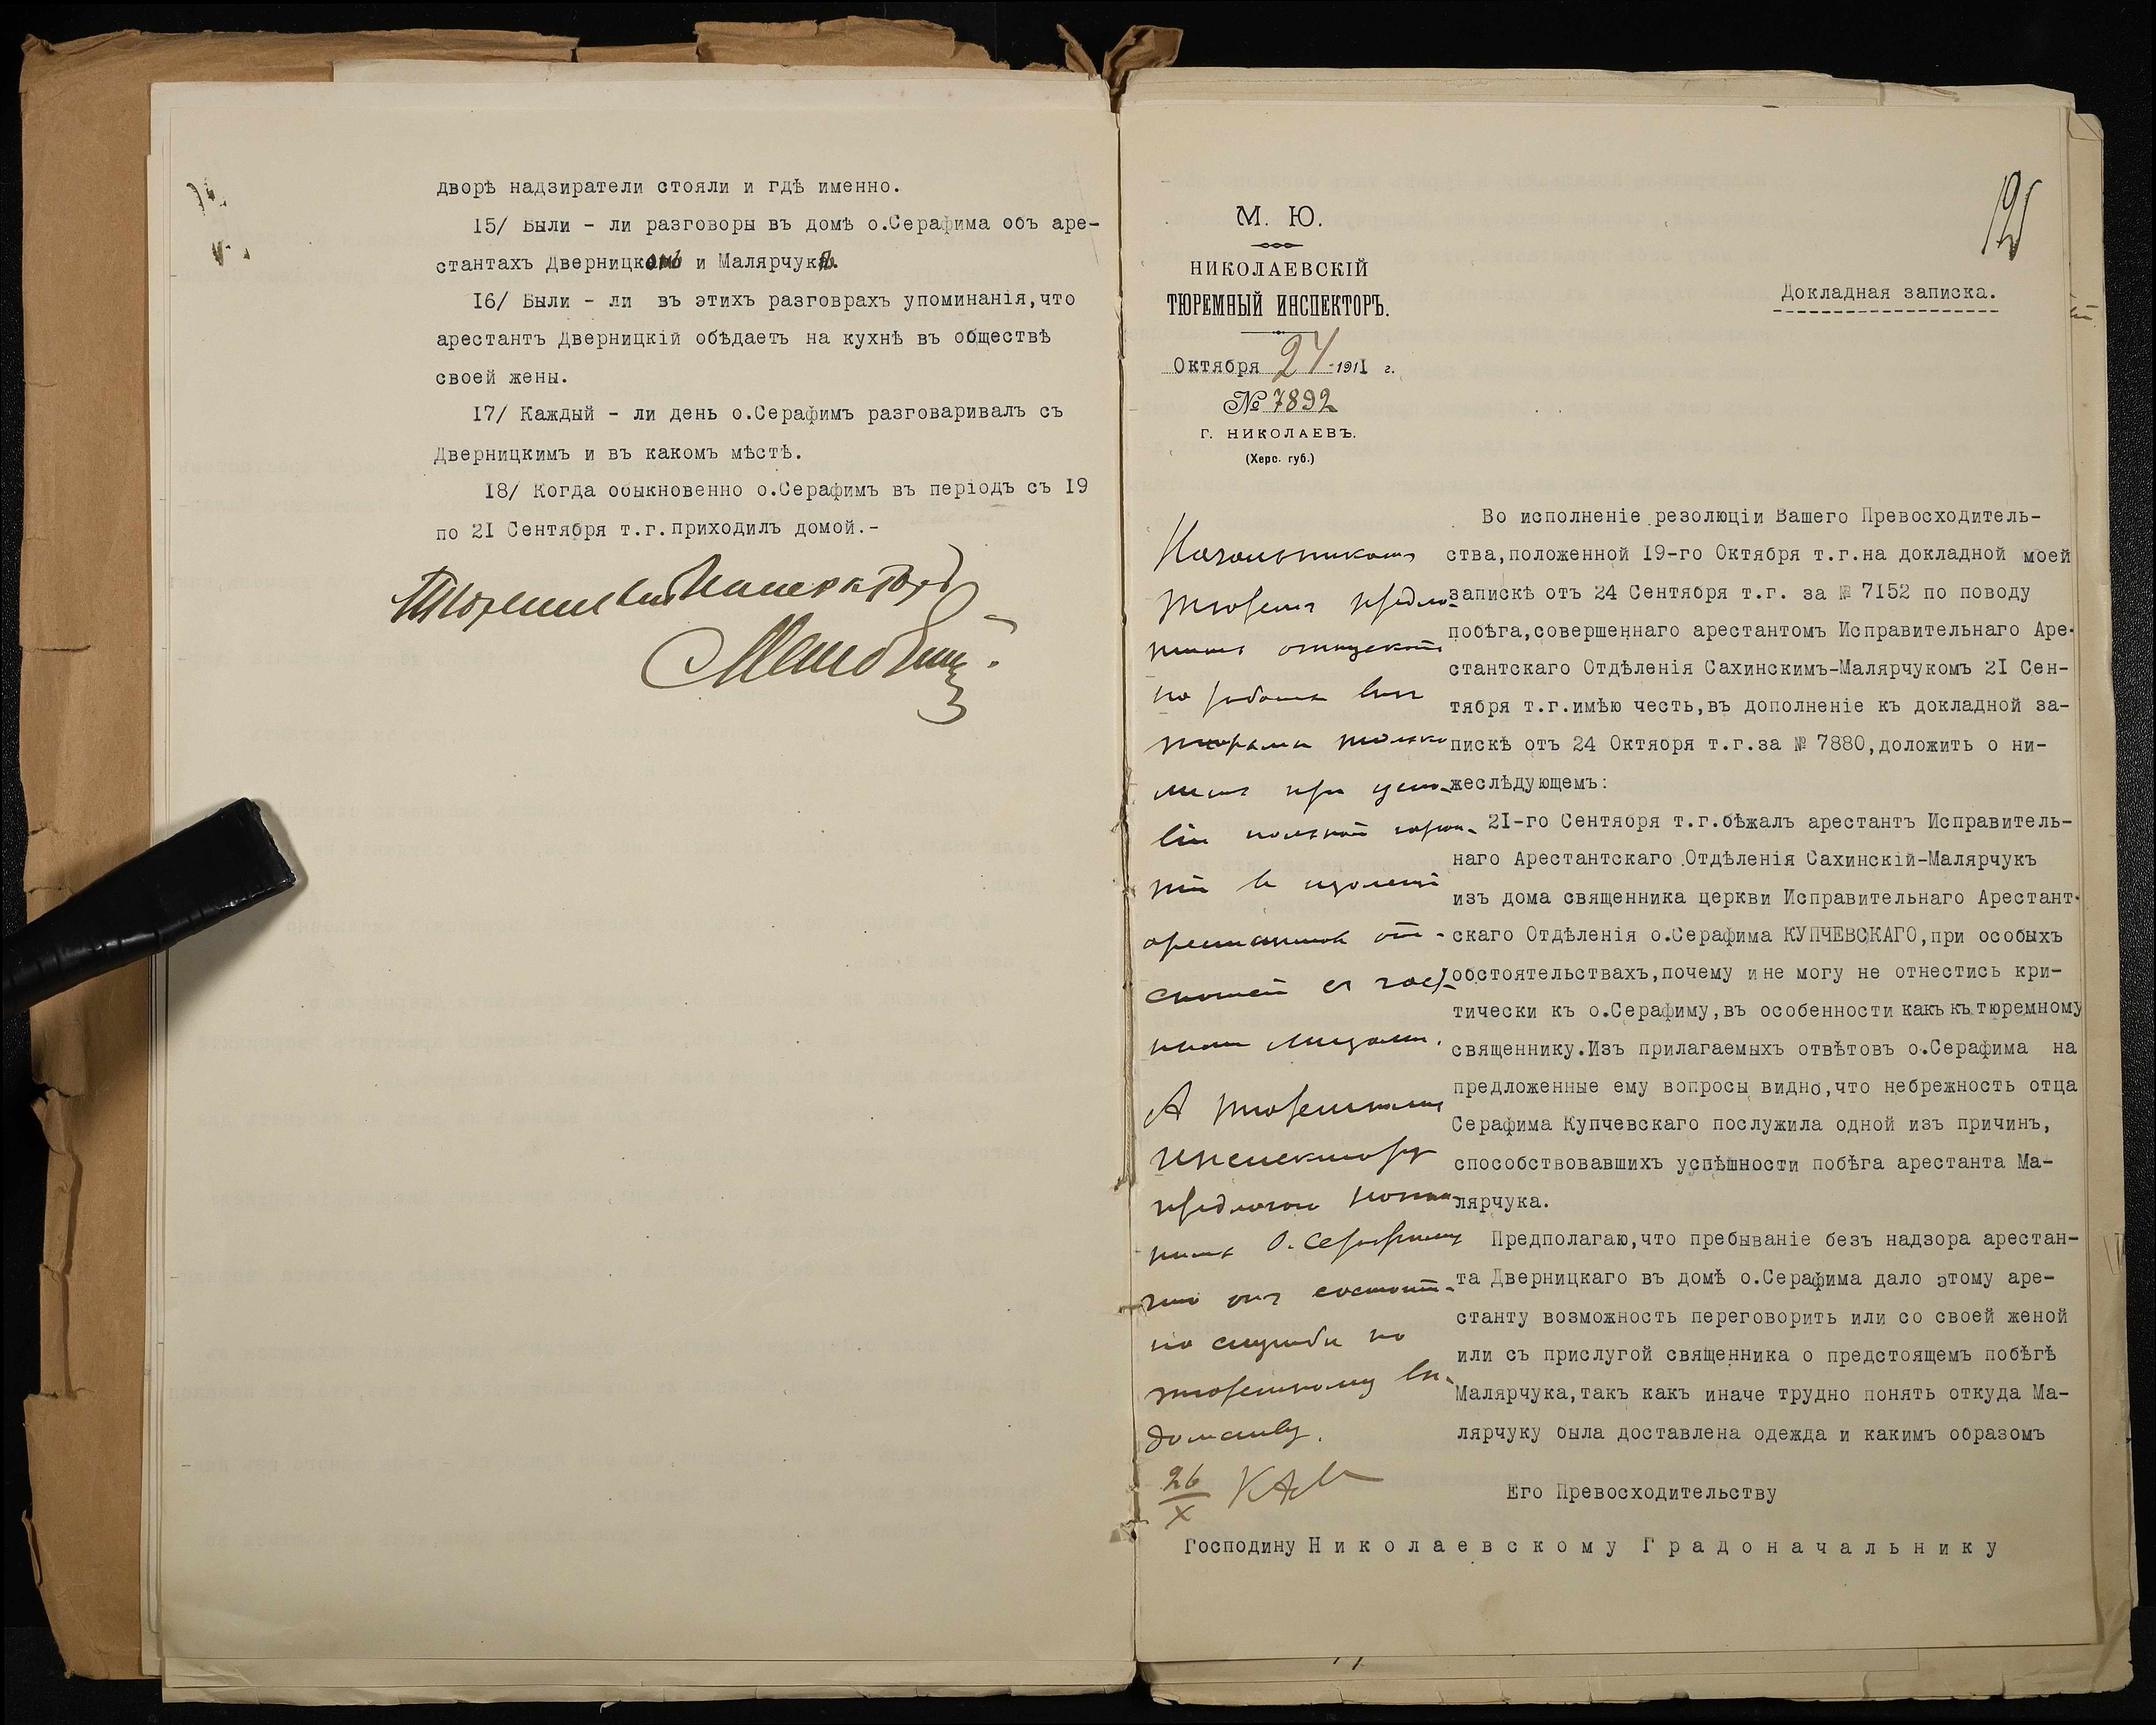 дворѣ надзиратели стояли и гдѣ именно.
15/ Были - ли разговоры въ домѣ о.Серафима объ аре-
стантахъ Дверницкомъ и Малярчукѣ.
16/ Были - ли въ этихъ разговрахъ упоминанія,что
арестантъ Дверницкій обѣдаетъ на кухнѣ въ обществѣ
своей жены.
17/ Каждый - ли день о.Серафимъ разговаривалъ съ
Дверницкимъ и въ какомъ мѣстѣ.
18/ Когда обыкновенно о.Серафимъ въ періодъ съ 19
по 21 Сентября т.г.приходилъ домой.-
Тюремный Инспекторъ
125
М. Ю.
НИКОЛАЕВСКІЙ
ТЮРЕМНЫЙ ИНСПЕКТОРЪ.
Октября 24 1911 г.
№ 7892
Г. НИКОЛАЕВЪ.
(Херс. губ.)
Докладная записка.
Во исполненіе резолюціи Вашего Превосходитель-
ства,положенной 19-го Октября т.г.на докладной моей
запискѣ отъ 24 Сентября т.г. за № 7152 по поводу
побѣга,совершеннаго арестантомъ Исправительнаго Аре-
стантскаго Отдѣленія Сахинскимъ-Малярчукомъ 21 Сен-
тября т.г.имѣю честь,въ дополненіе къ докладной за-
пискѣ отъ 24 Октября т.г.за № 7880,доложить о ни-
жеслѣдующемъ:
21-го Сентября т.г.бѣжалъ арестантъ Исправитель-
наго Арестантскаго Отдѣленія Сахинскій-Малярчукъ
изъ дома священника церкви Исправительнаго Арестант-
скаго Отдѣленія о.Серафима КУПЧЕВСКАГО,при особыхъ
обстоятельствахъ,почему и не могу не отнестись кри-
тически къ о.Серафиму,въ особенности какъ къ тюремному
священнику.Изъ прилагаемыхъ отвѣтовъ о.Серафима на
предложенные ему вопросы видно,что небрежность отца
Серафима Купчевскаго послужила одной изъ причинъ,
способствовавшихъ успѣшности побѣга арестанта Ма-
лярчука.
Предполагаю,что пребываніе безъ надзора арестан-
та Дверницкаго въ домѣ о.Серафима дало этому аре-
станту возможность переговорить или со своей женой
или съ прислугой священника о предстоящемъ побѣгѣ
Малярчука,такъ какъ иначе трудно понять откуда Ма-
лярчуку была доставлена одежда и какимъ образомъ
Его Превосходительству
Господину Николаевскому Градоначальнику
Начальникамъ
тюремъ предло-
на работы внѣ
тюрьмы только
лишь при усло-
віи полной гаран-
тіи въ
арестантовъ отъ
сношеній съ част-
ными лицами.
А тюремному
инспектору
предлагаю
о. Серафиму
что онъ состоитъ
на службѣ по
тюремному вѣ-
домству.
26
X